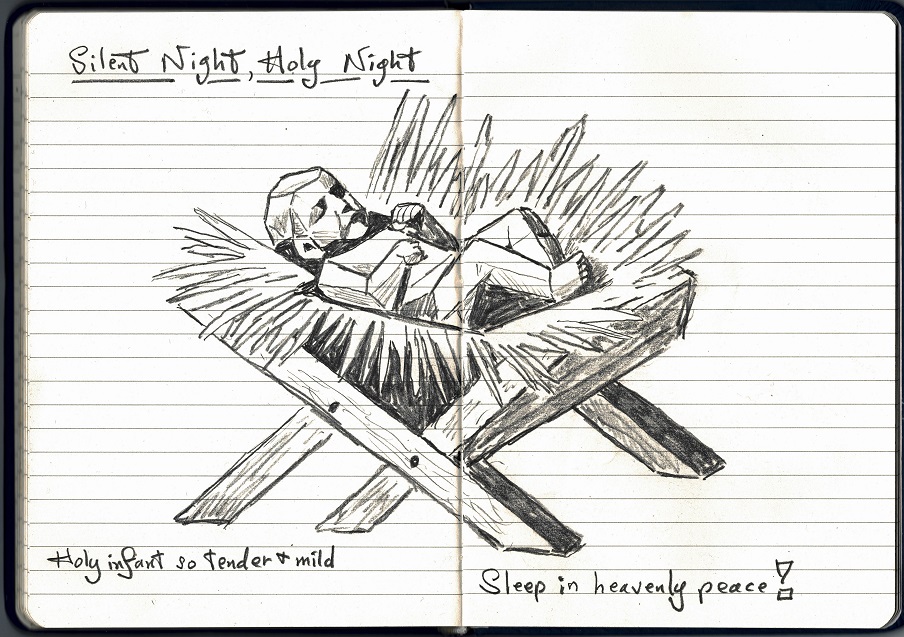 Silent Night, Holy Night
Holy infant so tender & mild
Sleep in heavenly peace!